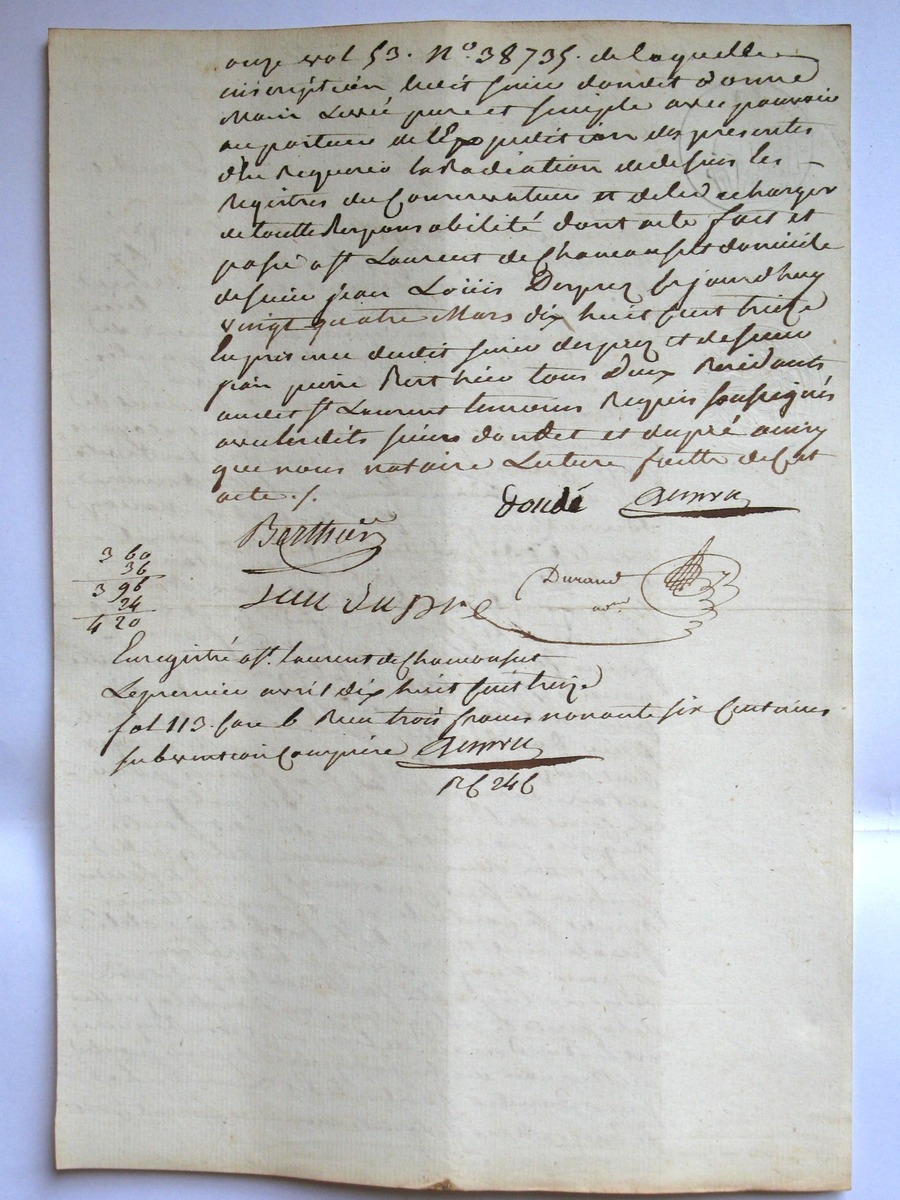 onze vol 53. N.° 38735. de laquelle
inscription ledit sieur dondet donne
Main Levée pure et simple avec pouvoir
au porteur de l'Expedition des presentes
d'en Requerir la Radiation de dessus les
Registres du Conservateur et de le decharger
de toutte Responsabilité dont acte fait et
passé a St Laurent de Chamousset domicile
de sieur jean Loüis Desprez Cejourdhuy
vingt quatre Mars dix huit Cent treize
En presence dudit sieur desprez et de sieur
jean pierre Berthier tous deux Residants
audit St Laurent temoins Requis soussignés
avec lesdits sieurs dondet et dupré ainsy
que nous notaire Lecture faitte de Cet
acte ./.
dondé
Berthier
3 60
36
3 96
24
4 20
Durand
jean dupré
Enregistré a St. Laurent de Chamousset
Le premier avril dix huit Cent treize
fol 113. Case 6 Reçu trois francs nonante six Centimes
subvention Comprise